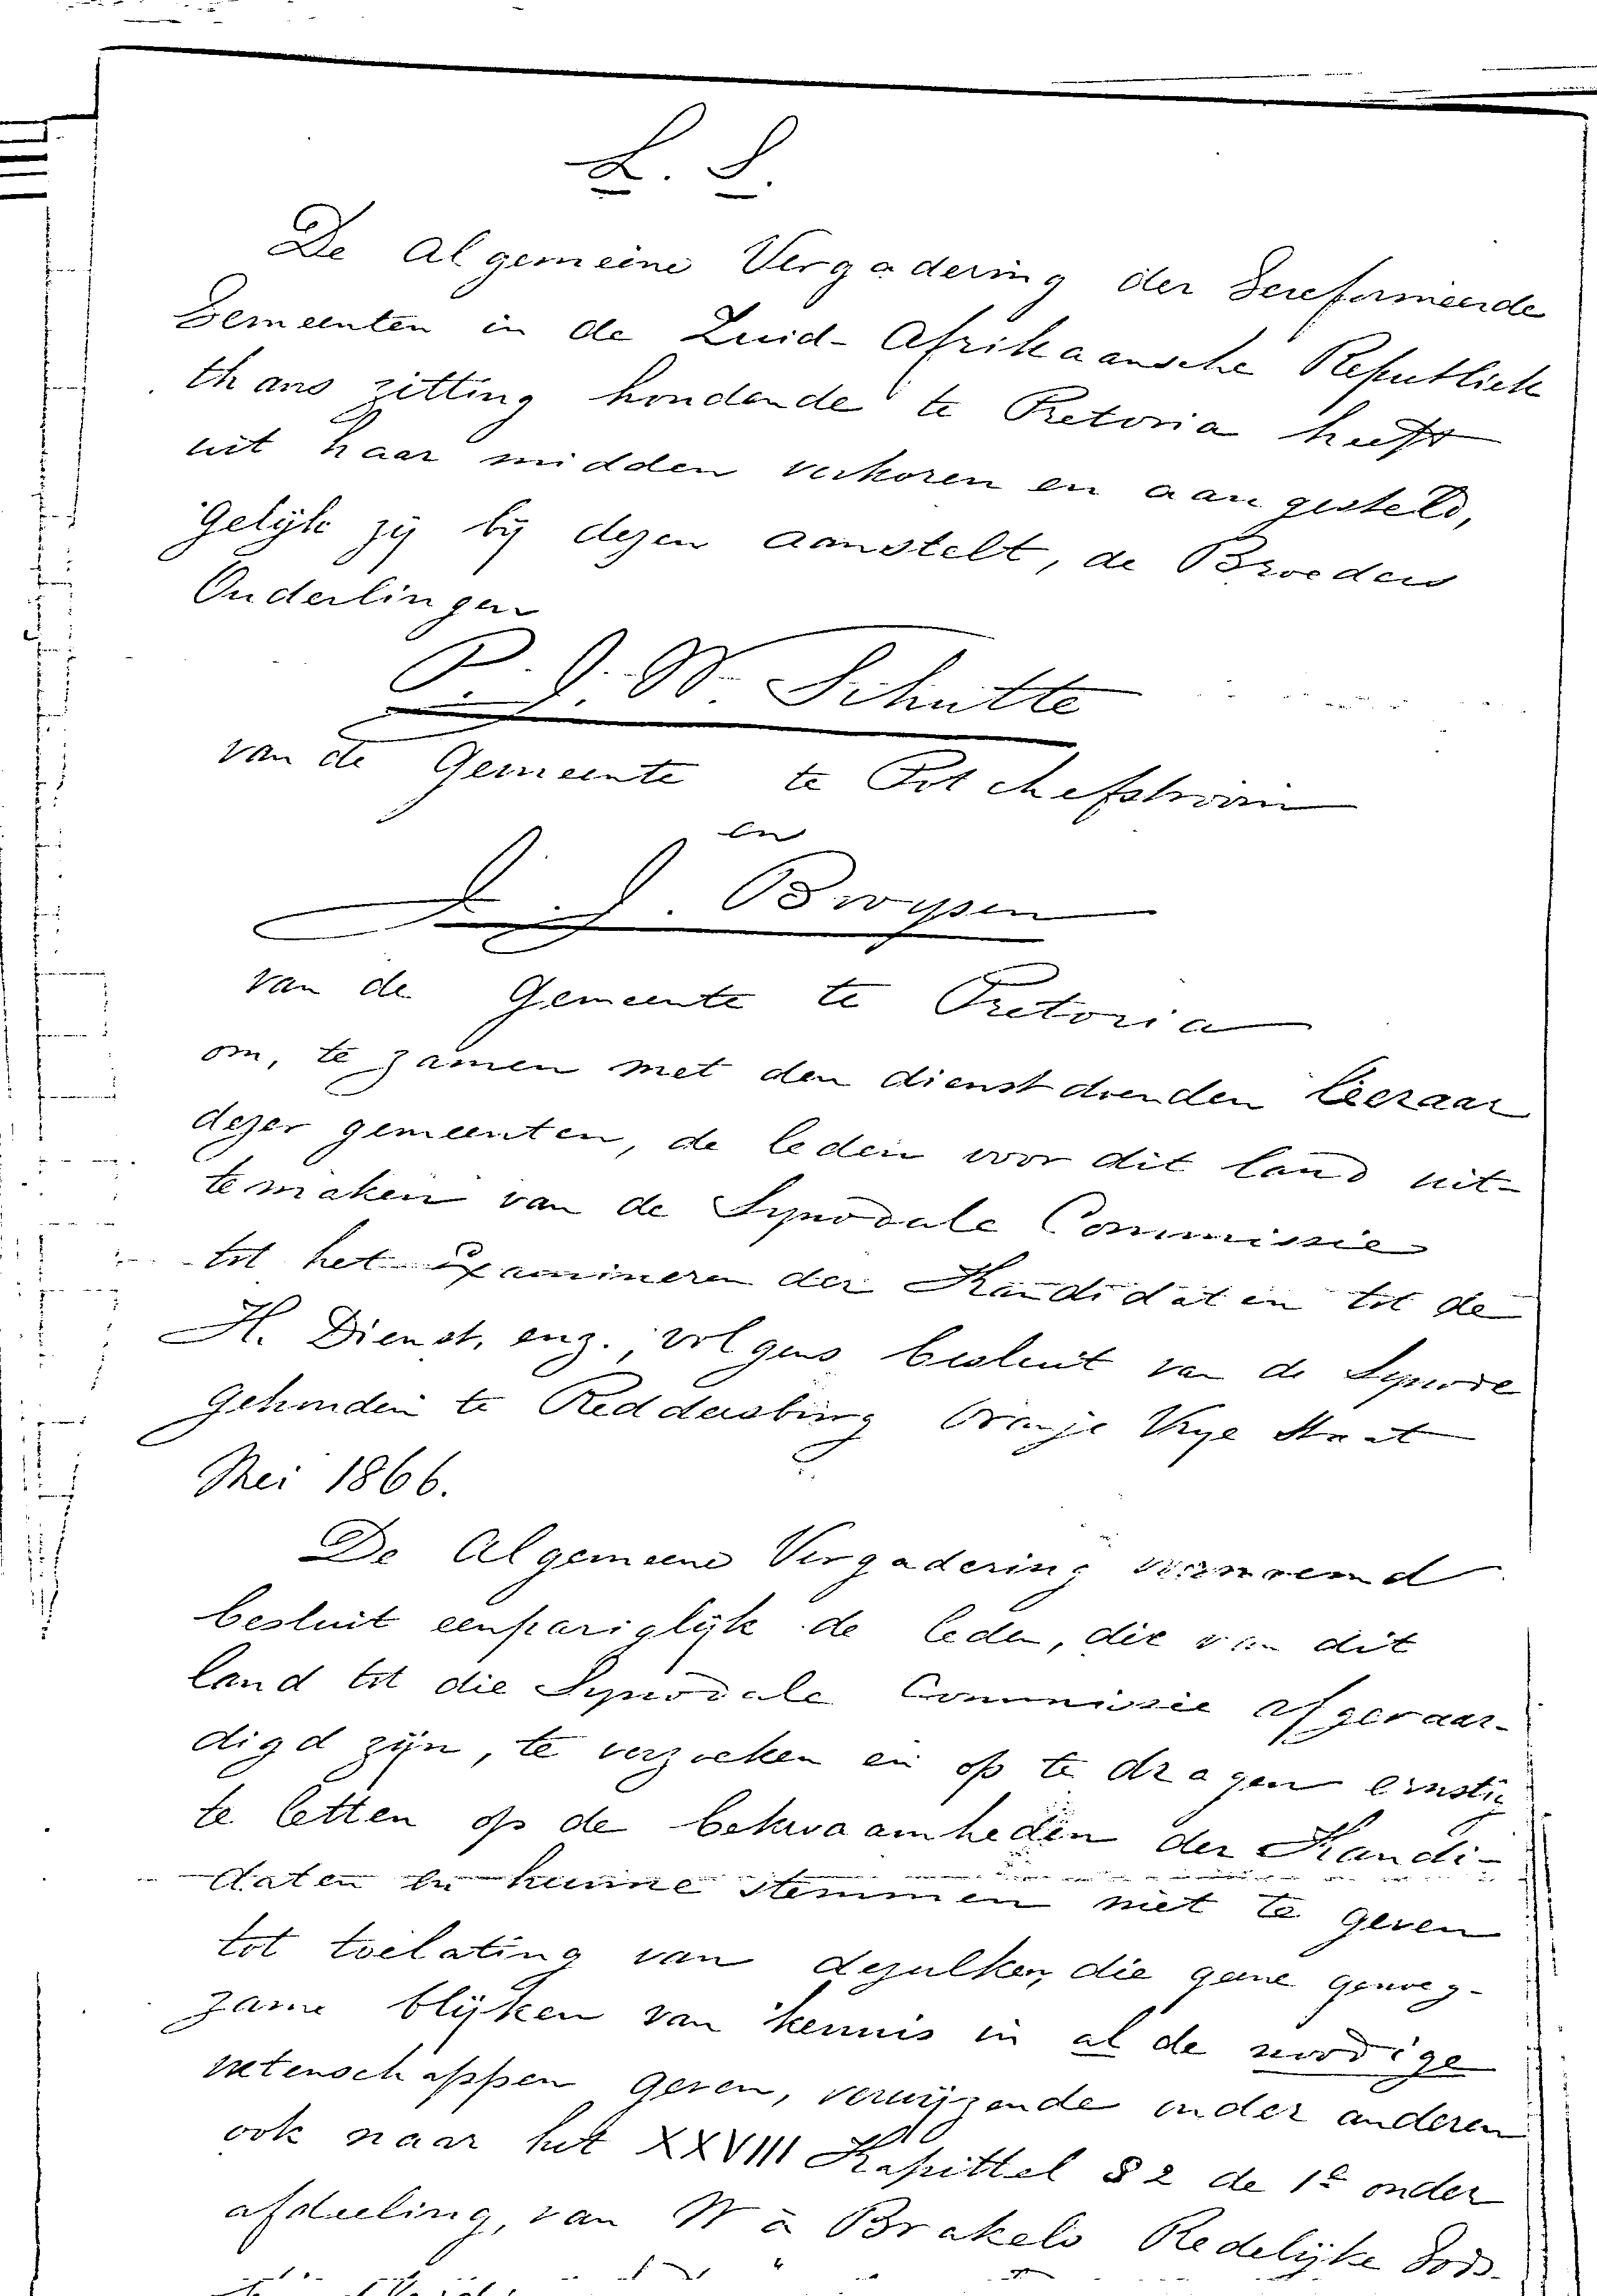 L. S.
De Algemeene Vergadering der Gereformeerde
Gemeenten in de Zuid-Afrikaansche Republiek
thans zitting houdende te Pretoria heeft
uit haar midden verkoren en aangesteld,
Gelijk zij bij dezen aanstelt, de Broeders
Ouderlingen
P. J. W. Schutte
van de Gemeente te Potchefstroom
en
J. J. Bruyen
van de Gemeente te Pretoria
om, te zamen met den dienstdoenden leeraar
dezer gemeenten, de leden voor dit land uit-
temaken van de Synodale Commissie
tot het examineren der Kandidaten tot de
H. Dienst, enz., volgens besluit van de Synode
Gehouden te Reddersburg Oranje Vrye Staat
Mei 1866.
De Algemeene Vergadering voornoemd
besluit eenpariglijk de leden, die van dit
land tot die Synodale Commissie afgevaar-
digd zijn, te verzoeken en op te dragen ernstig
te letten op de bekwaamheden der Kandi-
daten en hunne stemmen niet te geven
tot toelating van dezulken, die geene genoeg-
zame blijken van kennis in al de noodige
wetenschappen geven, verwijzende onder anderen
ook naar het XXVIII Kapittel § 2 de 1e onder
afdeeling, van W à Brakels Redelijke Gods-